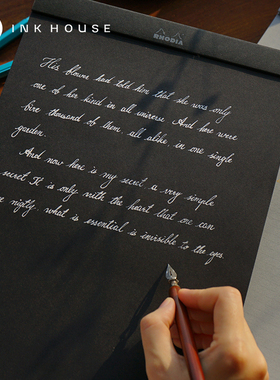 INK HOUSE
RHODIA
His flower had told him that she was only
one of her kind in all universe. And here were
five thousand of them, all alike, in one single
garden.
And now here is my secret, a very simple
secret. It is only with the heart that one can
rightly, what is essential is invisible to the eyes